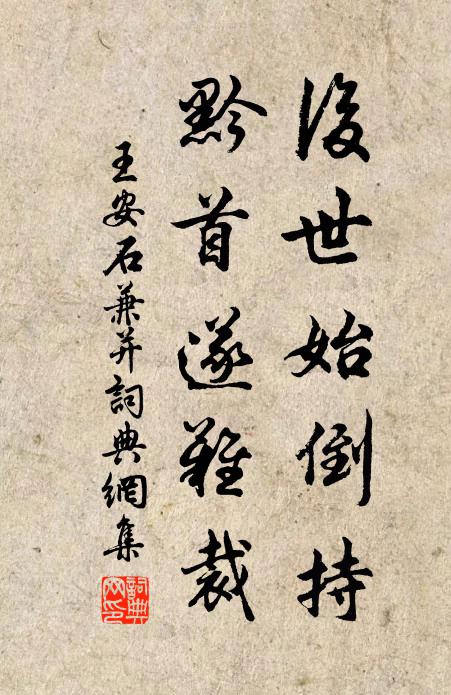 後世始倒持
黔首遂難裁
王安石兼并詞典網集
詞典网印